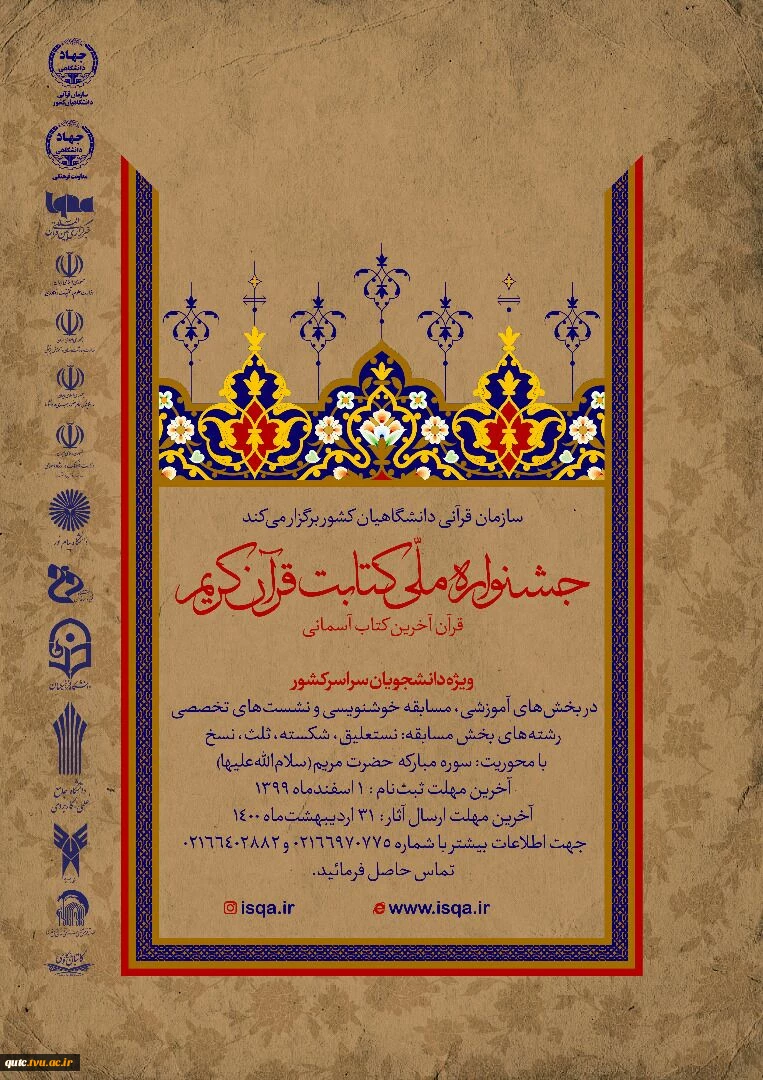 سازمان قرآنی دانشگاهیان کشور برگزار می‌کند
جشنواره ملّی کتابت قرآن کریم
قرآن آخرین کتاب آسمانی
ویژه دانشجویان سراسر کشور
در بخش‌های آموزشی، مسابقه خوشنویسی و نشست‌های تخصصی
رشته‌های بخش مسابقه: نستعلیق، شکسته، ثلث، نسخ
با محوریت: سوره مبارکه حضرت مریم (سلام‌الله‌علیها)
آخرین مهلت ثبت‌نام : ۱ اسفندماه ۱۳۹۹
آخرین مهلت ارسال آثار : ۳۱ اردیبهشت‌ماه ۱۴۰۰
جهت اطلاعات بیشتر با شماره ۰۲۱۶۶۹۷۰۷۷۵ و ۰۲۱۶۶۴۰۲۸۸۲
تماس حاصل فرمائید.
www.isqa.ir
isqa.ir
جهاد
دانشگاهی
سازمان قرآنی
دانشگاهیان کشور
جهاد
دانشگاهی
معاونت فرهنگی
iqna
دانشگاه پیام نور
دانشگاه فرهنگیان
دانشگاه جامع
علمی کاربردی
qutc.tvu.ac.ir